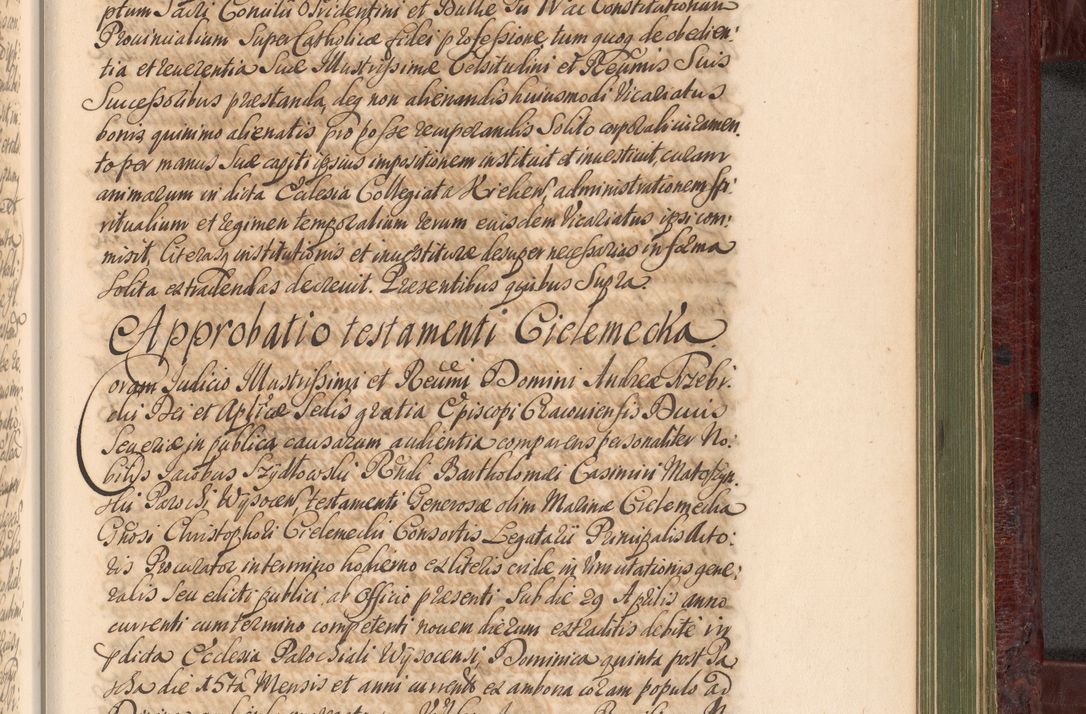 ptum Sacri Concilii Tridentini et Bullæ Pii IV ac Constitutionum
Prouincialium Super Catholicæ fidei professione, tum quoq de obedien:
tia et reuerentia Suæ Illustrissimæ Celsitudini et Reumis Suis
Successoribus præstanda, deq non alienandis huiusmodi Vicariatus
bonis, quinimo alienatis pro posse recuperandis Solito corporali iuramen
to per manus Suæ capiti ipsius impositionem instituit et inuestiuit, curam
animarum in dicta Ecclesia Collegiata Kielcens administrationem Spi
ritualium et regimen temporalium rerum eiusdem Vicariatus ipsi com:
misit, Literasq institutionis et inuestituræ desuper necessarias in forma
Solita extradendas decreuit. Præsentibus quibus Supra
Approbatio testamenti Cielemecka
Coram Judicio Illustrissimi et Reuermi Domini Andreæ Trzebi:
cki Dei et Aplicæ Sedis gratia Episcopi Cracouiensis Ducis
Seueriæ in publica causarum audientia comparens personaliter No:
bilis Jacobus Szydłowski Rndi Bartholomæi Casimiri Matoszyn
skii Parochi Wysocen, testamenti Generosæ olim Marinæ Cielemecka
Gnosi Christophori Cielemecki Consortis Legatarii Principalis Acto:
ris Procurator in termino hodierno ex literis cridæ in Vim citationis gene:
ralis Seu edicti publici ab Officio præsenti Sub die 29 Aprilis anno
currenti cum termino competenti nouem dierum extraditis debite in
prædicta Ecclesia Parochiali Wysocensi Dominica quinta post Pa
scha die 15ta Mensis et anni currentis ex ambona coram populo ad